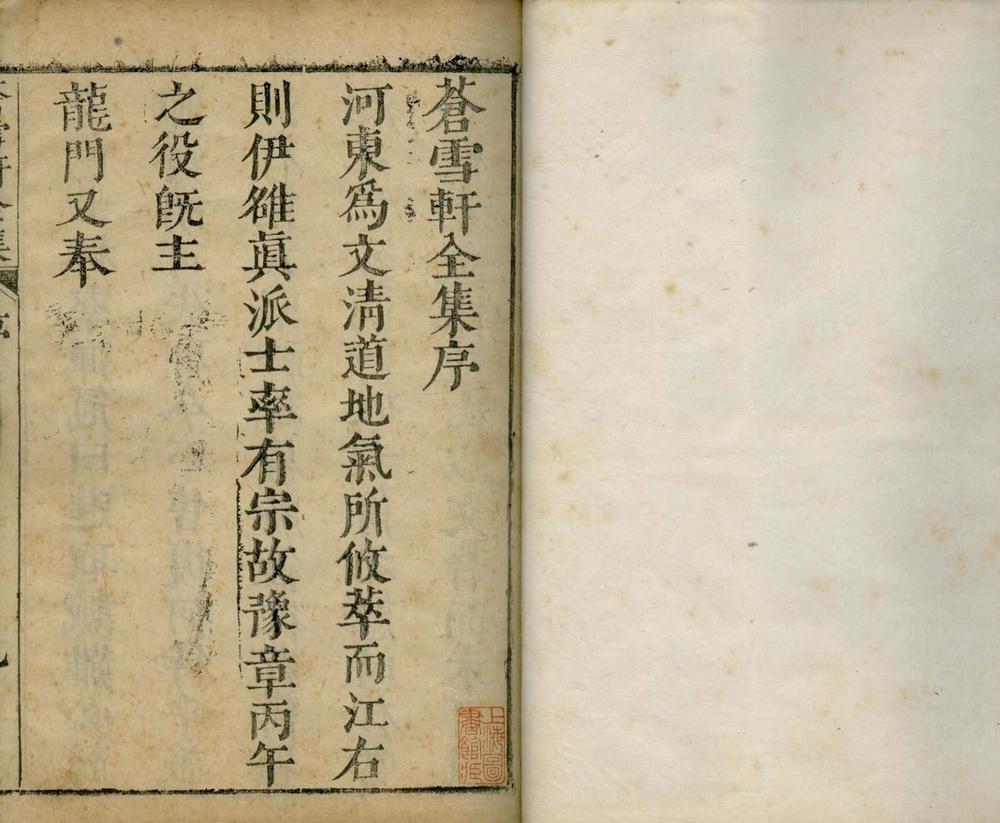 蒼雪軒全集序
河東爲文淸道地氣所攸萃而江右
則伊雒眞派士率有宗故豫章丙午
之役旣主
龍門又奉
上海圖
書館藏